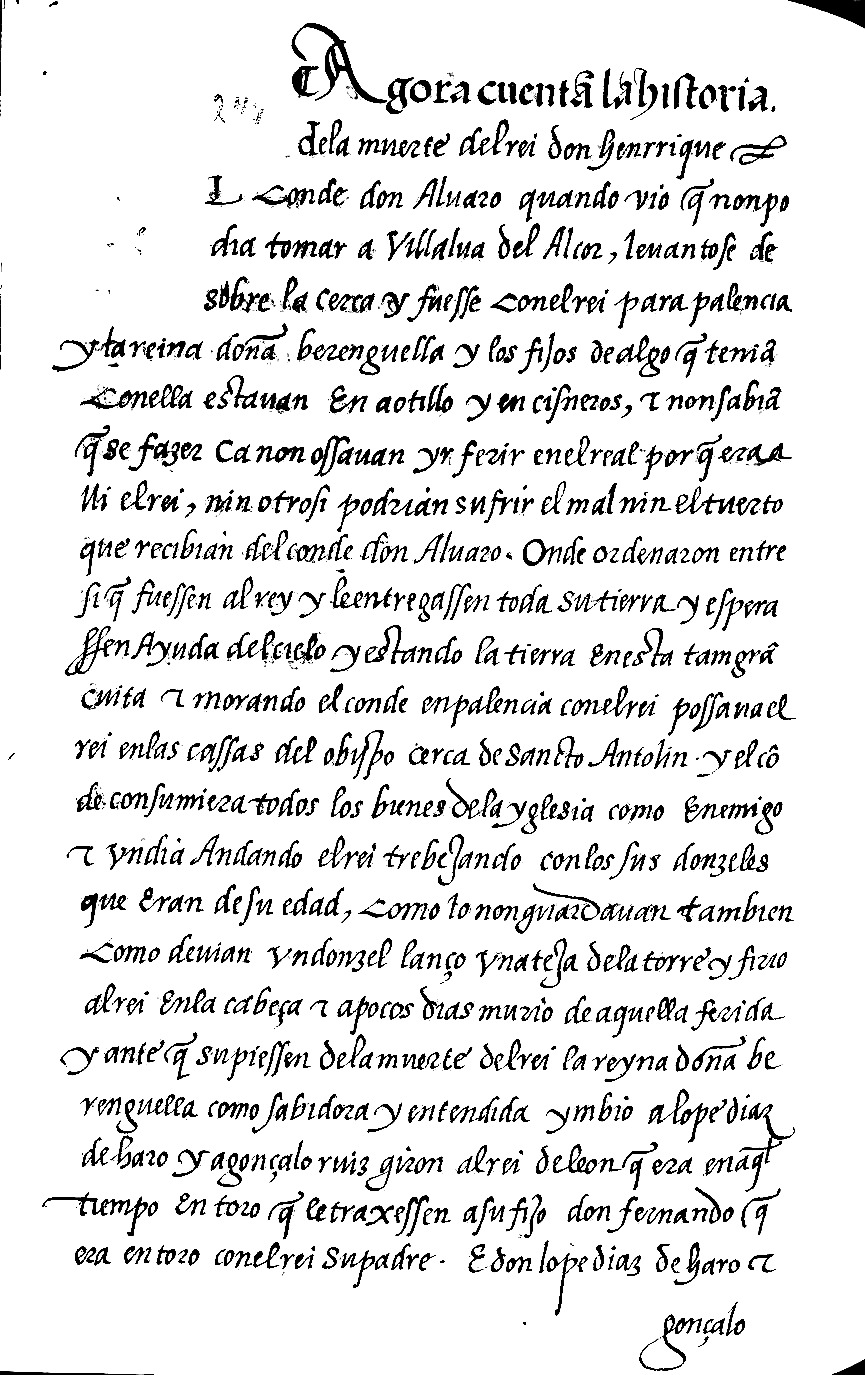 Agora cuentã la historia.
dela muerte del rei don henrrique
L Conde don Aluaro quando vio q̃ nonpo
dia tomar a Villalua del Alcor, leuantose de
sobre la cerca y fuesse conelrei para palencia
y la reina doña berenguella y los fijos de algo q̃ teniã
Conella estauan En aotillo y en cisneros, τ nonsabiã
q̃ se fazer Ca non ossauan yr ferir enelreal porq̃ era a
lli elrei, nin otrosi podrian sufrir el mal nin eltuerto
que recibian del conde don Aluaro. Onde ordenaron entre
si q̃ fuessen al rey y le entregassen toda su tierra y espera
ssen Ayuda del cielo y estando la tierra Enesta tamgrã
Cuita τ morando el conde enpalencia conelrei possaua el
rei enlas cassas del obispo cerca de Sancto Antolin. y el cõ
de consumiera todos los bunes dela yglesia como Enemigo
τ vndia Andando elrei trebejando conlos sus donzeles
que Eran de su edad, Como lo nonguardauan tambien
Como deuian vndonzel lanço vnateja dela torre y firio
alrei Enla cabeça τ apocos dias murio de aquella ferida
y ante q̃ supiessen dela muerte del rei la reyna doña be
renguella como sabidora y entendida ymbio alope diaz
de haro y agonçalo ruiz giron alrei de leon q̃ era enaq̃l
tiempo En toro q̃ le traxessen asu fijo don fernando q̃
era en toro conelrei Supadre. E don lope diaz de haro τ
gonçalo